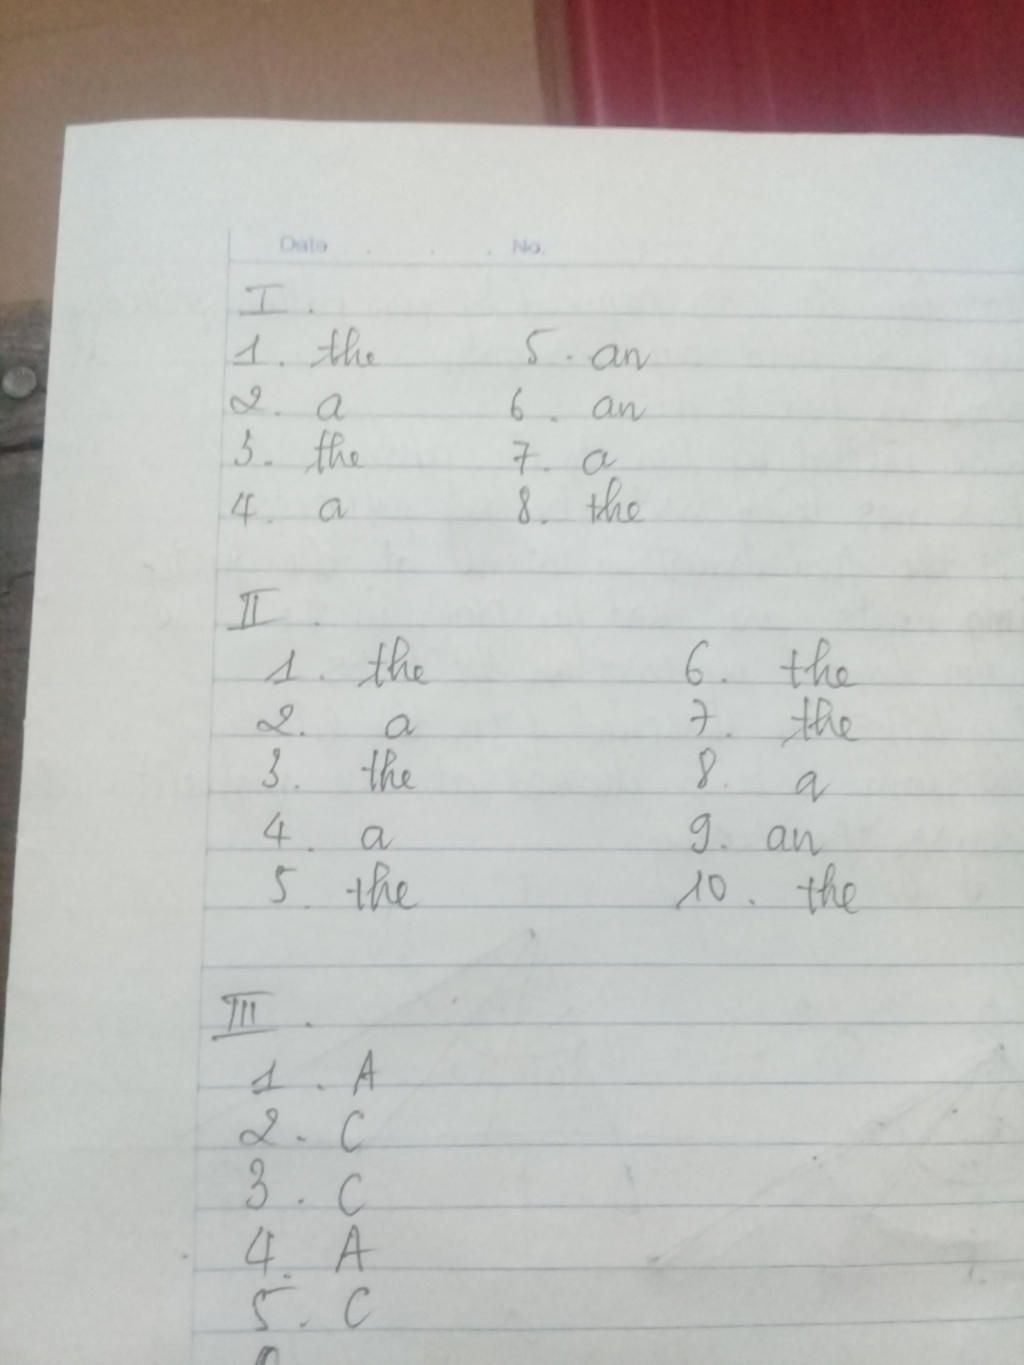 Date No.
I.
1. the 5. an
2. a 6. an
3. the 7. a
4. a 8. the
II.
1. the 6. the
2. a 7. the
3. the 8. a
4. a 9. an
5. the 10. the
III.
1. A
2. C
3. C
4. A
5. C